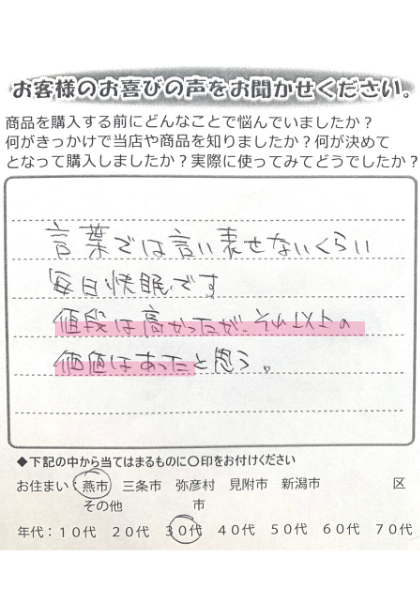 お客様のお喜びの声をお聞かせください。
商品を購入する前にどんなことで悩んでいましたか？
何がきっかけで当店や商品を知りましたか？何が決めて
となって購入しましたか？実際に使ってみてどうでしたか？
言葉では言い表せないくらい
毎日快眠です
値段は高かったが、それ以上の
価値はあったと思う。
◆下記の中から当てはまるものに〇印をお付けください
お住まい：燕市 三条市 弥彦村 見附市 新潟市 区
その他 市
年代：１０代 ２０代 ３０代 ４０代 ５０代 ６０代 ７０代